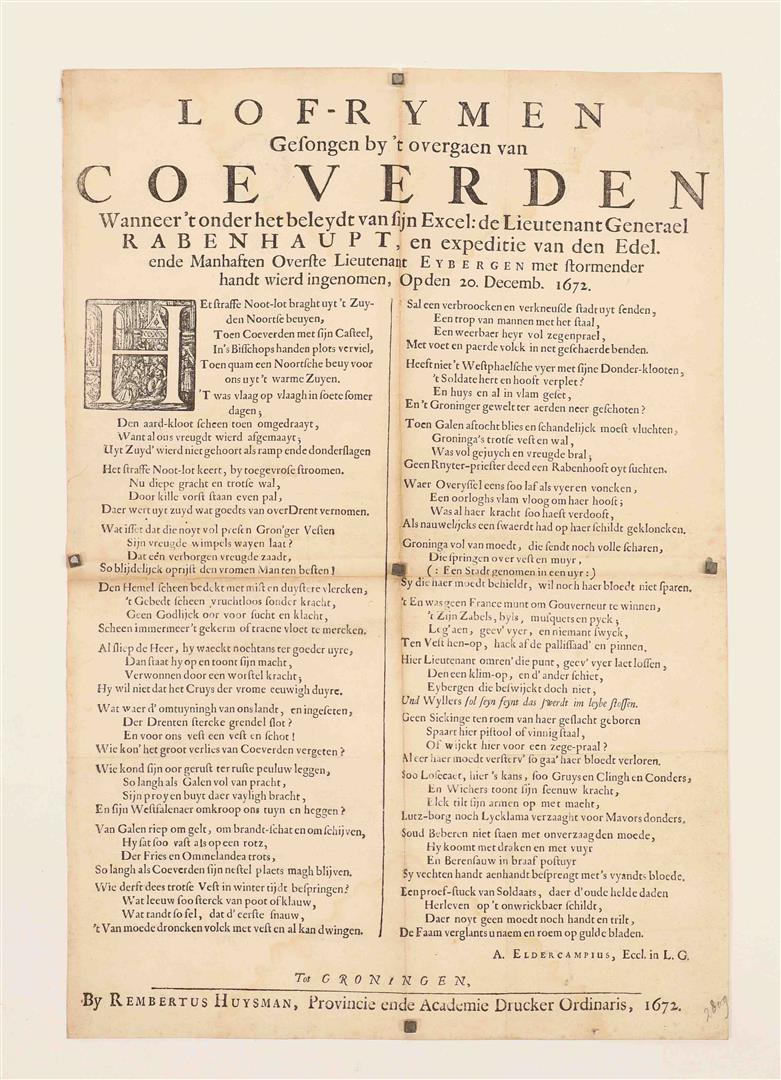 LOF-RYMEN
Gesongen by 't overgaen van
COEVERDEN
Wanneer 't onder het beleydt van sijn Excel: de Lieutenant Generael
RABENHAUPT, en expeditie van den Edel.
ende Manhaften Overste Lieutenant EYBERGEN met stormender
handt wierd ingenomen, Op den 20. Decemb. 1672.
HEt straffe Noot-lot braght uyt 't Zuy-
den Noortse beuyen,
Toen Coeverden met sijn Casteel,
In's Bisschops handen plots verviel,
Toen quam een Noortsche beuy voor
ons uyt 't warme Zuyen.
'T was vlaag op vlaagh in soete somer
dagen;
Den aard-kloot scheen toen omgedraayt,
Want al ons vreugdt wierd afgemaayt;
Uyt Zuyd' wierd niet gehoort als ramp ende donderslagen
Het straffe Noot-lot keert, by toegevrose stroomen.
Nu diepe gracht en trotse wal,
Door kille vorst staan even pal,
Daer wert uyt zuyd wat goedts van over Drent vernomen.
Wat isset dat die noyt vol presen Gron'ger Vesten
Sijn vreugde wimpels wayen laat?
Dat eén verborgen vreugde zaadt,
So blijdelijck oprijst den vromen Man ten besten!
Den Hemel scheen bedekt met mist en duystere vlercken,
't Gebedt scheen vruchtloos sonder kracht,
Geen Godlijck oor voor sucht en klacht,
Scheen immermeer 't gekerm of traene vloet te mercken.
Al sliep de Heer, hy waeckt nochtans ter goeder uyre,
Dan staat hy op en toont sijn macht,
Verwonnen door een worstel kracht;
Hy wil niet dat het Cruys der vrome eeuwigh duyre.
Wat waer d'omtuyningh van ons landt, en ingeseten,
Der Drenten stercke grendel slot?
En voor ons vest een vest en schot!
Wie kon' het groot verlies van Coeverden vergeten?
Wie kond sijn oor gerust ter ruste peuluw leggen,
So langh als Galen vol van pracht,
Sijn proyen buyt daer vayligh bracht,
En sijn Westfalenaer omkroop ons tuyn en heggen?
Van Galen riep om gelt, om brandt-schat en om schijven,
Hy sat soo vast als op een rotz,
Der Fries en Ommelandea trots,
So langh als Coeverden sijn nestel plaets magh blijven.
Wie derst dees trotse Vest in winter tijdt bespringen?
Wat leeuw soo sterck van poot of klauw,
Wat tandt so fel, dat d'eerste snauw,
't Van moede droncken volck met vest en al kan dwingen.
Sal een verbroocken en verkneusde stadt uyt senden,
Een trop van mannen met het staal,
Een weerbaer heyr vol zegenprael,
Met voet en paerde volck in net geschaerde benden.
Heeft niet 't Westphaelsche vyer met sijne Donder-klooten,
't Soldate hert en hooft verplet?
En huys en al in vlam geset,
En 't Groninger gewelt ter aerden neer geschoten?
Toen Galen aftocht blies en schandelijck moest vluchten,
Groninga's trotse vest en wal,
Was vol gejuych en vreugde bral;
Geen Ruyter-priester deed een Rabenhooft oyt suchten.
Waer Overyssel eens soo laf als vyer en voncken,
Een oorloghs vlam vloog om haer hooft;
Was al haer kracht soo haest verdooft,
Als nauwelijcks een swaerdt had op haer schildt gekloncken.
Groninga vol van moedt, die sendt noch volle scharen,
Die springen over vest en muyr,
(: Een Stadt genomen in een uyr :)
Sy die haer moedt behieldt, wil noch haer bloedt niet sparen.
't En was geen France munt om Gouverneur te winnen,
't Zijn Zabels, byls, musquets en pyck;
Leg' aen, geev' vyer, en niemant swyck,
Ten Vest hen-op, hack af de pallissaad' en pinnen.
Hier Lieutenant omren' die punt, geev' vyer laet lossen,
Den een klim-op, en d'ander schiet,
Eybergen die beswijckt doch niet,
Und Wyllers sol seyn feynt das swerdt im leybe stossen.
Geen Sickinge ten roem van haer geslacht geboren
Spaart hier pistool of vinnig staal,
Of wijckt hier voor een zege-praal?
Al eer haer moedt versterv' so gaa' haer bloedt verloren.
Soo Losecaet, hier 's kans, soo Gruys en Clingh en Conders,
En Wichers toont sijn leeuw kracht,
Elck tilt sijn armen op met macht,
Lutz-borg noch Lycklama verzaaght voor Mavors donders.
Soud Beberen niet staen met onverzaagden moede,
Hy koomt met draken en met vuyr
En Berensauw in braaf postuyr
Sy vechten handt aen handt besprengt met 's vyandts bloede.
Een proef-stuck van Soldaats, daer d'oude helde daden
Herleven op 't onwrickbaer schildt,
Daer noyt geen moedt noch handt en trilt,
De Faam verglants u naem en roem op gulde bladen.
A. ELDERCAMPIUS, Eccl. in L. G.
Tot GRONINGEN,
By REMBERTUS HUYSMAN, Provincie ende Academie Drucker Ordinaris, 1672.